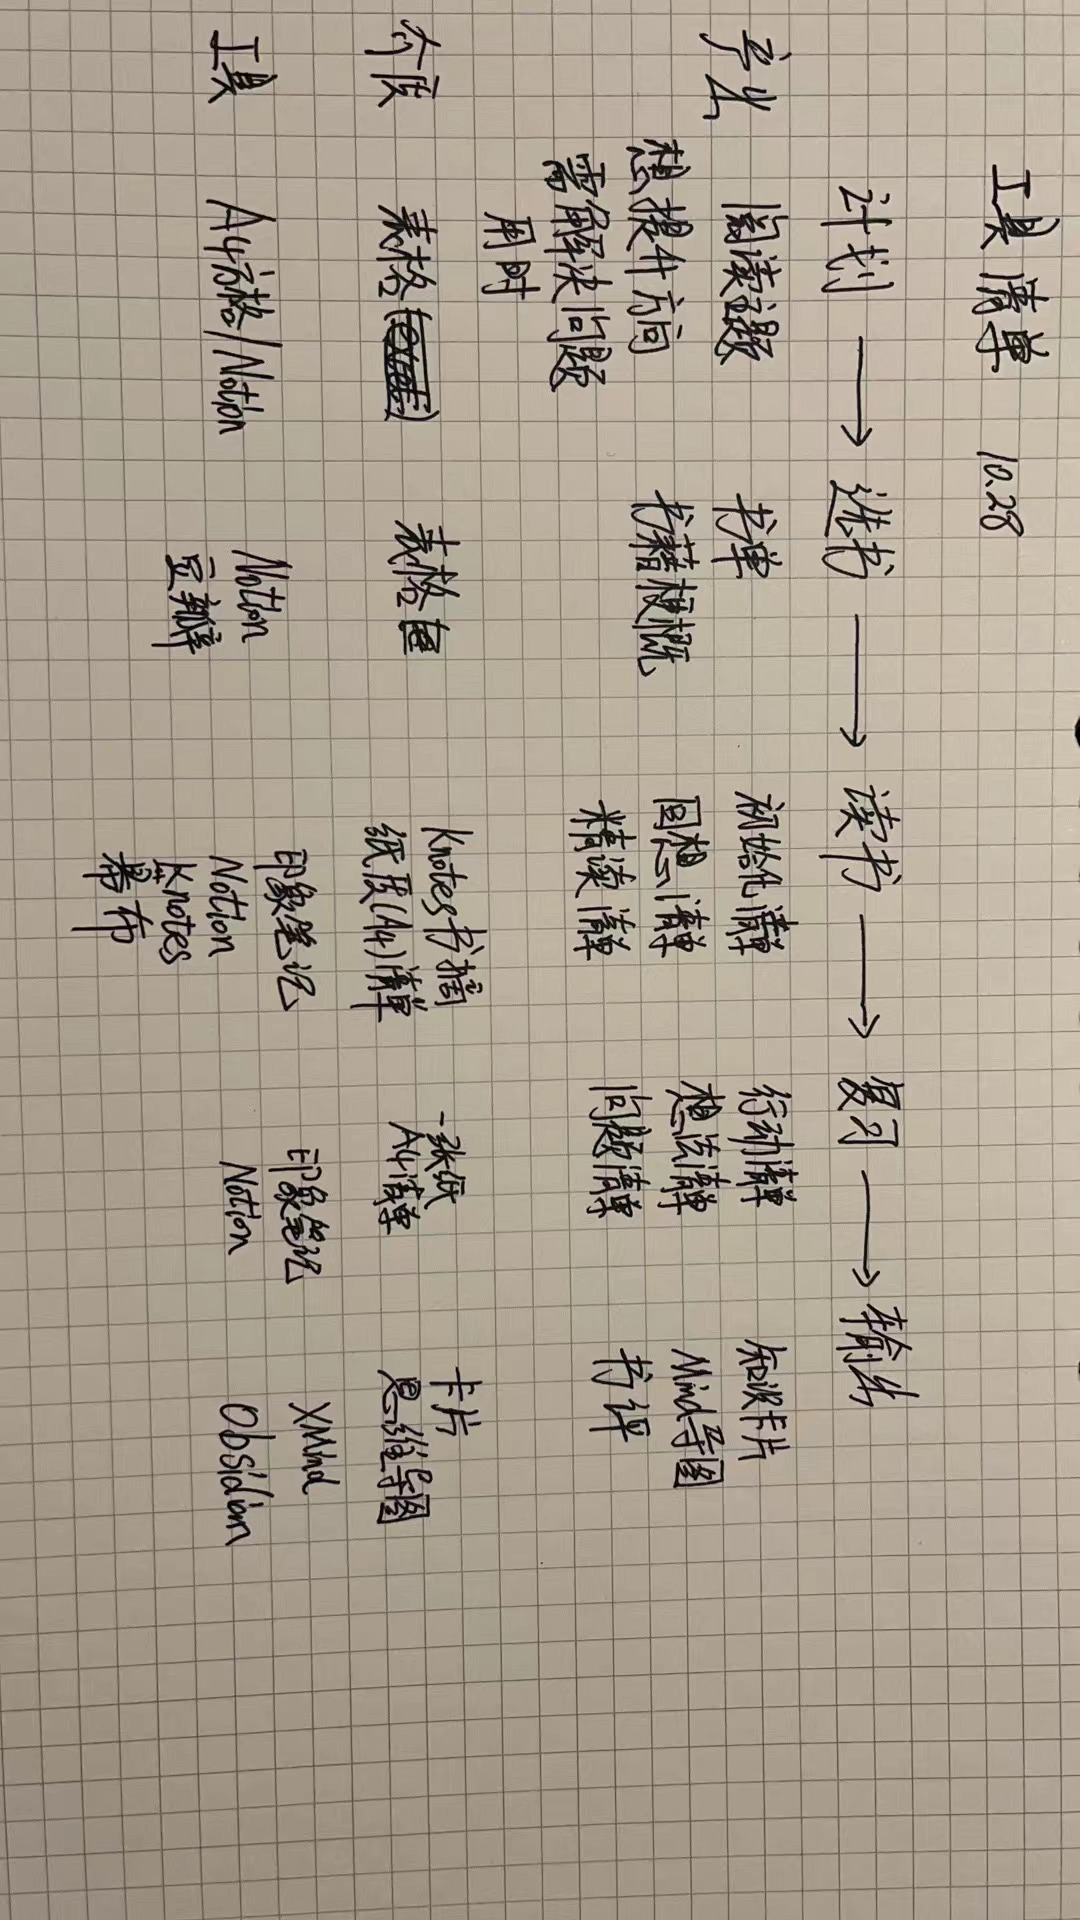 工具清单 10.28
计划 → 选书 → 读书 → 复习 → 输出
产出
阅读主题
想提升方向
需解决问题
用时
书单
书籍梗概
初始化清单
回想清单
精读清单
行动清单
想法清单
问题清单
知识卡片
Mind导图
书评
介质
表格
表格
Knotes书摘
纸质(A4)清单
一张纸
A4清单
卡片
思维导图
工具
A4方格/Notion
Notion
豆瓣
印象笔记
Notion
Knotes
幕布
印象笔记
Notion
XMind
Obsidian